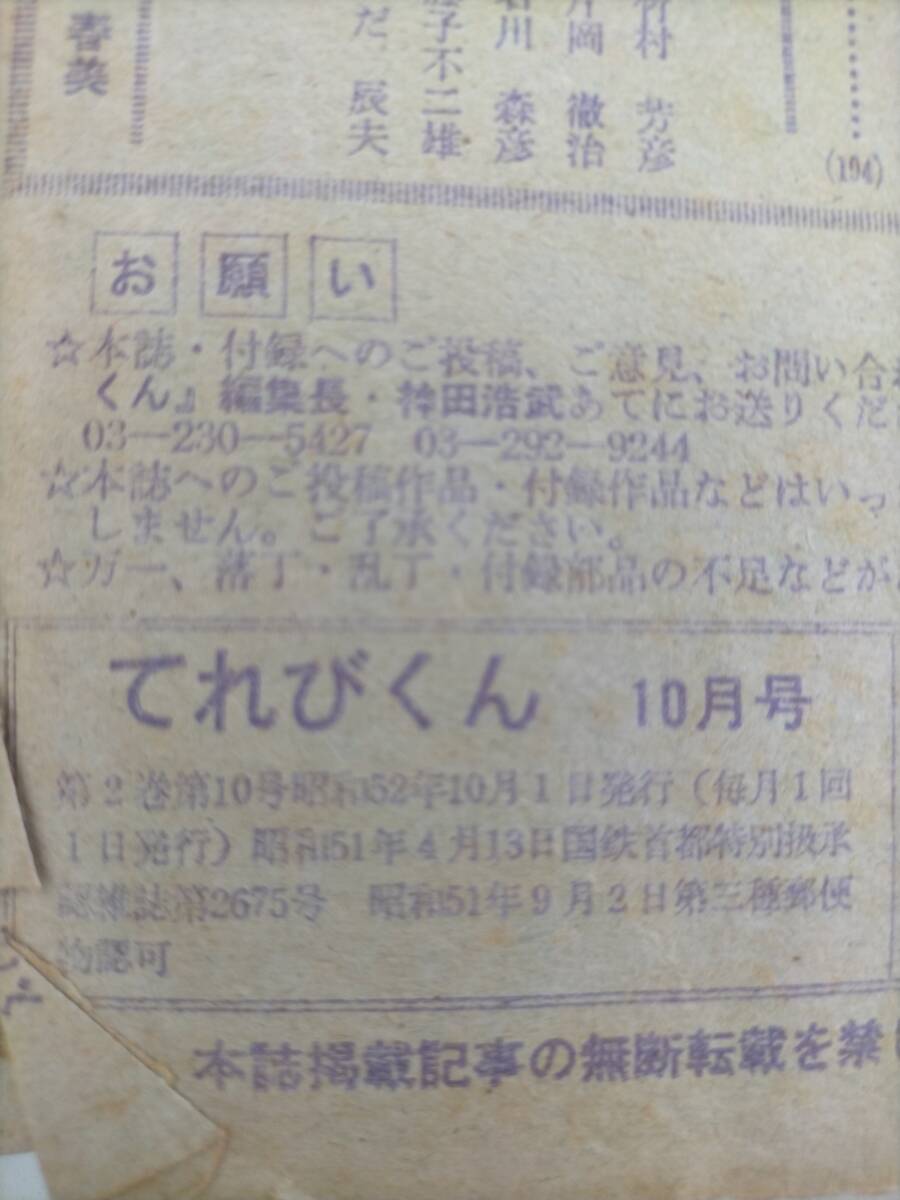 春美
村 芳彦
岡 徹治
川 森彦
子不二雄
だ 辰夫
(194)
お願い
☆本誌・付録へのご投稿、ご意見、お問い合
くん』編集長・神田浩武あてにお送りくだ
03—230—5427 03—292—9244
☆本誌へのご投稿作品・付録作品などはいっ
しません。ご了承ください。
☆万一、落丁・乱丁・付録部品の不足などが
てれびくん 10月号
第2巻第10号昭和52年10月1日発行（毎月1回
1日発行）昭和51年4月13日国鉄首都特別扱承
認雑誌第2675号 昭和51年9月2日第三種郵便
物認可
本誌掲載記事の無断転載を禁